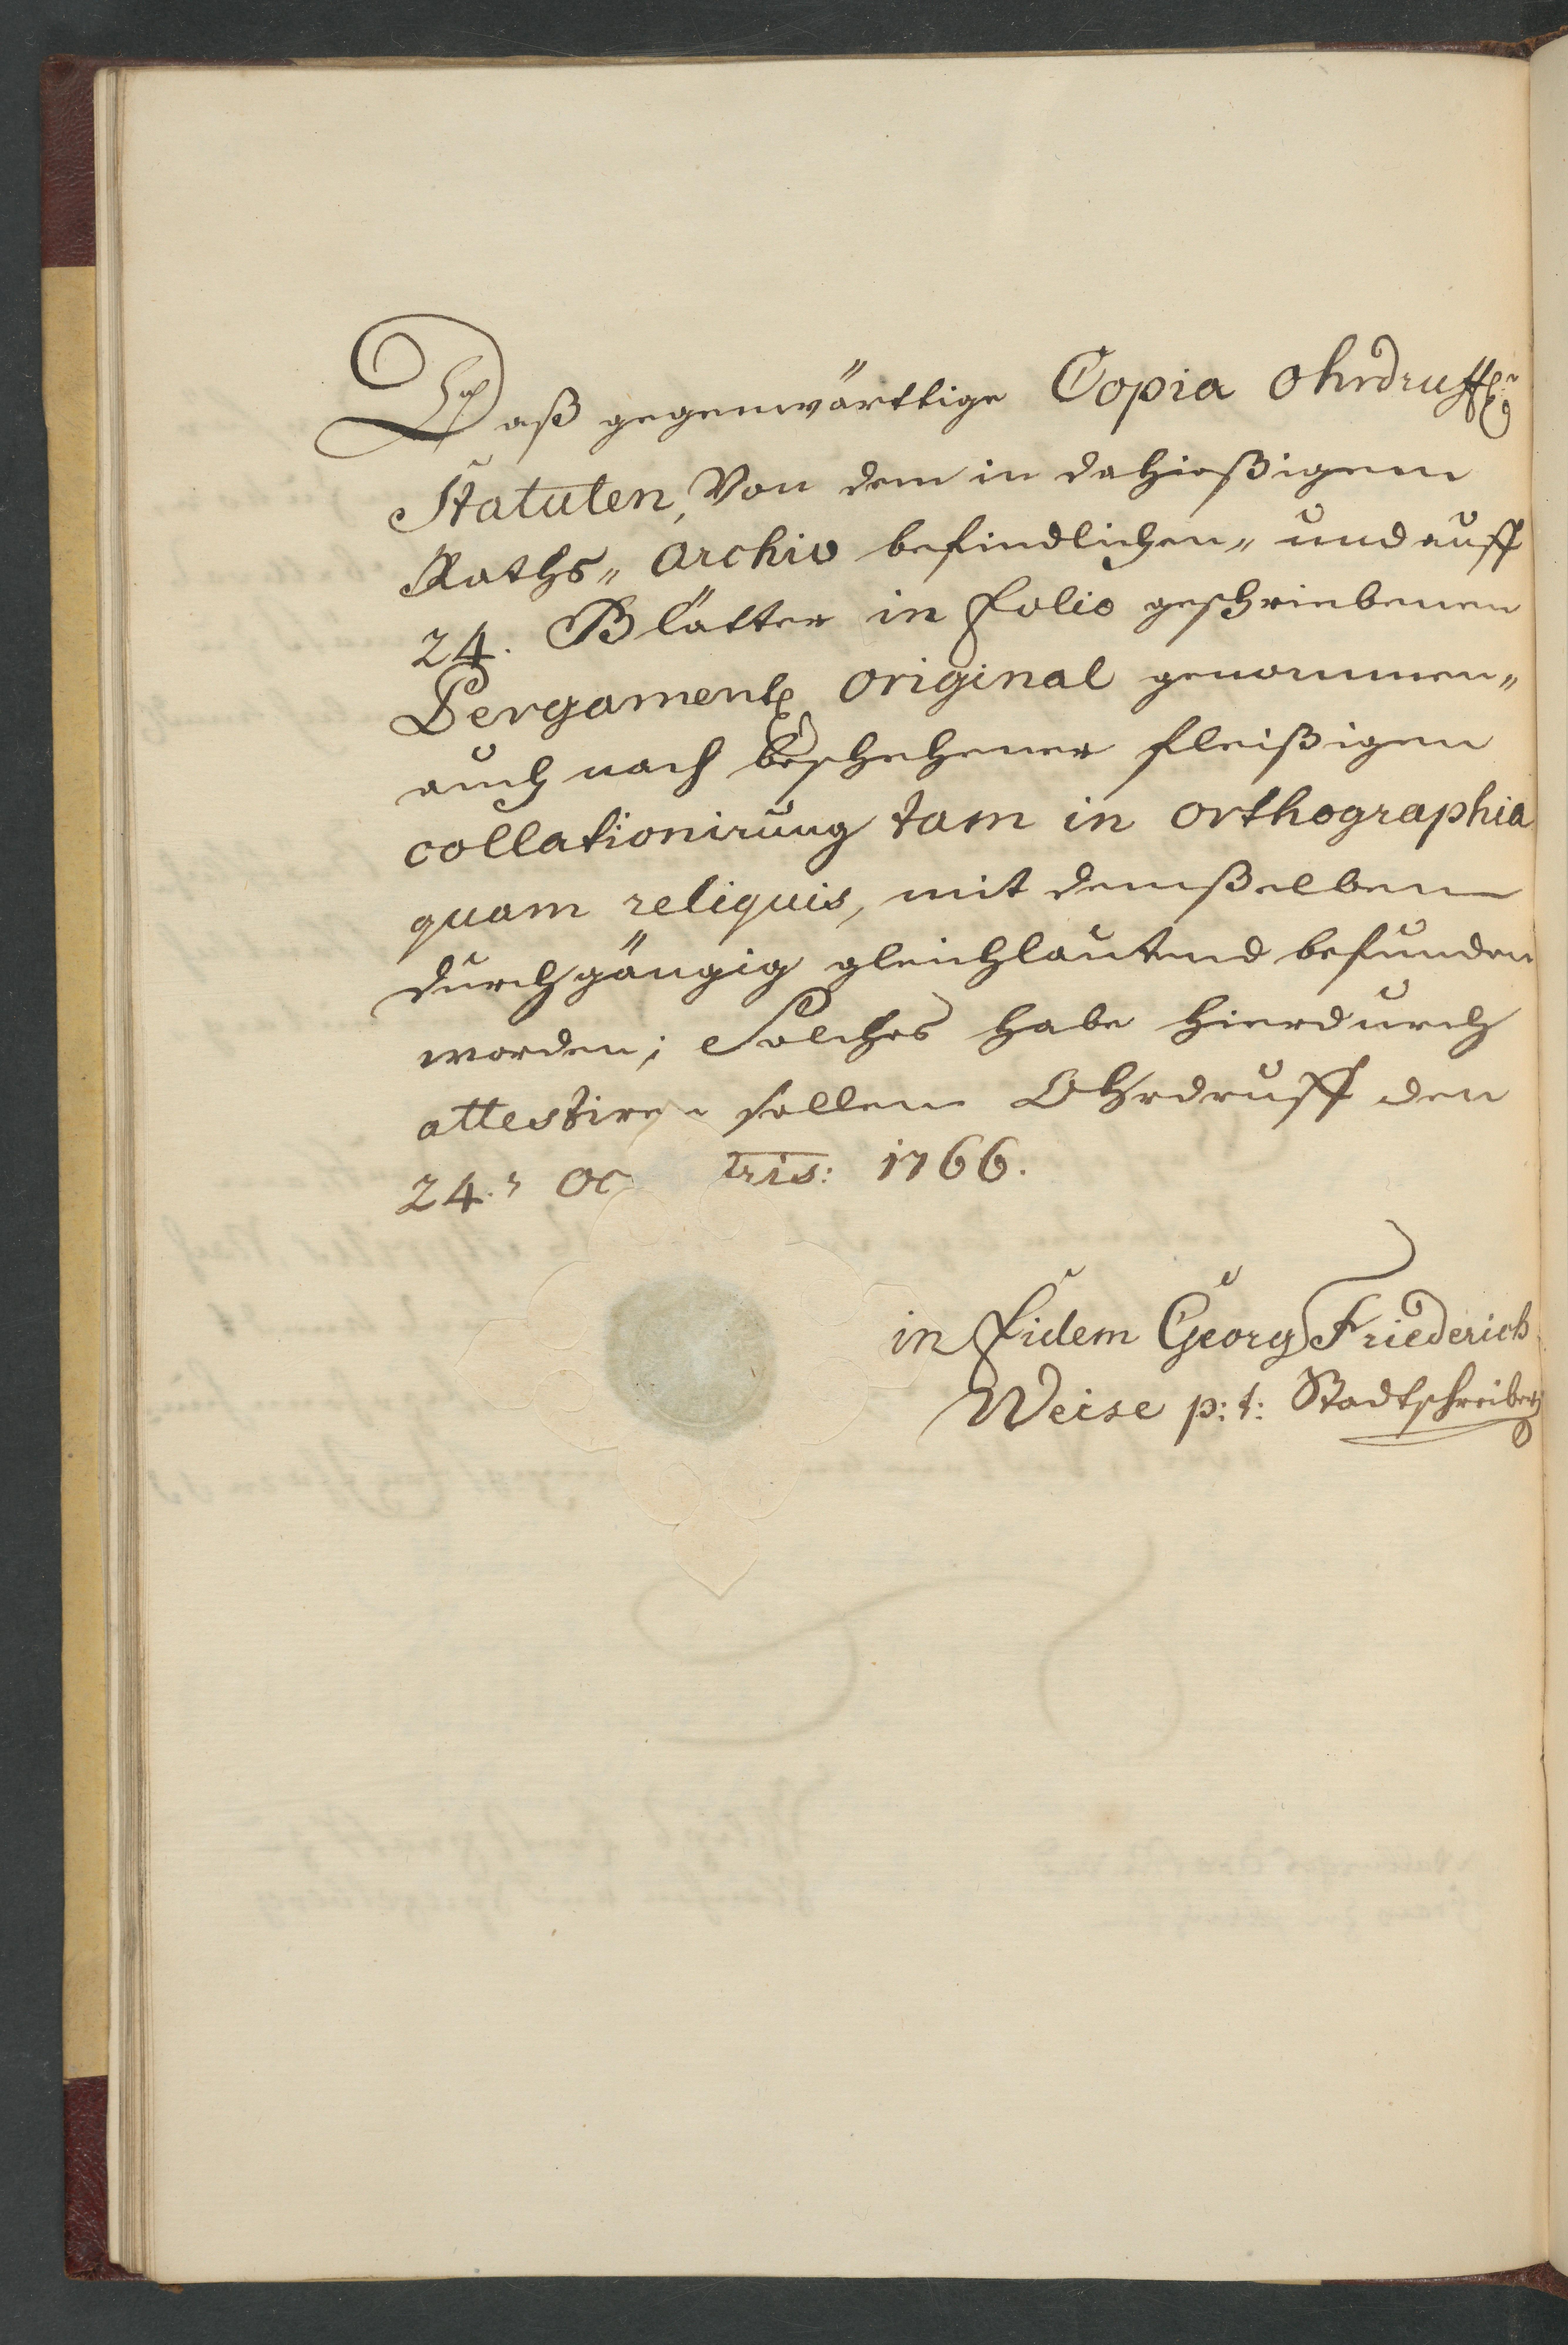 Daß gegenwärttige Copia Ohrdruffl:
Statuten, Von dem in dahießigem
Raths„ Archiv befindlichen„ und auff
24. Blätter in folio geschriebenen
Pergament original genommen„
auch nach beschehener fleißigen
collationirung tam in orthographia
quam reliquis, mit demßelben
durchgängig gleichlautend befunden
worden; Solches habe hierdurch
attestiren sollen Ohrdruff den
24. Oc bris: 1766.
in fidem Georg Friederich
Weise p: t: Stadtschreiber